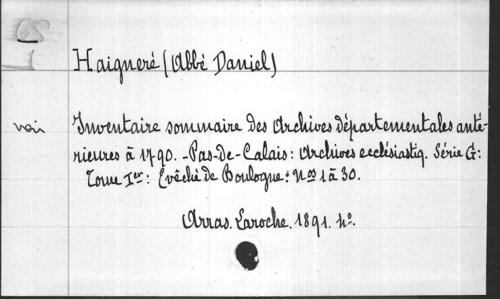 Haigneré (Abbé Daniel)
voir Inventaire sommaire des Archives départementales anté-
rieures à 1790. - Pas-de-Calais: Archives ecclésiastiq. Série G:
Tome Ier: Evêché de Boulogne: Nos 1 à 30.
Arras. Laroche. 1891. 4o.